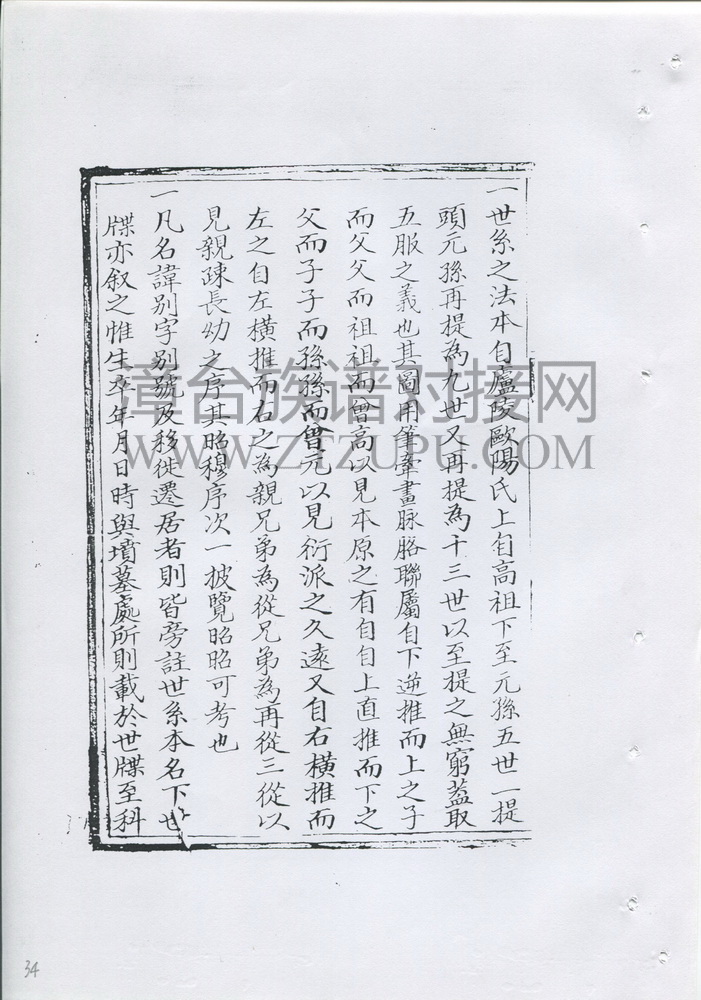 一世系之法本自廬陵歐陽氏上自高祖下至元孫五世一提
頭元孫再提為九世又再提為十三世以至提之無窮蓋取
五服之義也其圖用筆牽畫脉胳聯屬自下逆推而上之子
而父父而祖祖而曾高以見本原之有自自上直推而下之
父而子子而孫孫而曾元以見衍派之久遠又自右橫推而
左之自左橫推而右之為親兄弟為從兄弟為再從三從以
見親疎長幼之序其昭穆序次一披覽昭昭可考也
一凡名諱别字别號及移徙遷居者則皆旁註世系本名下世
牒亦叙之惟生卒年月日時與墳墓處所則載於世牒至科
漳台族谱对接网
WWW.ZTZUPU.COM
34